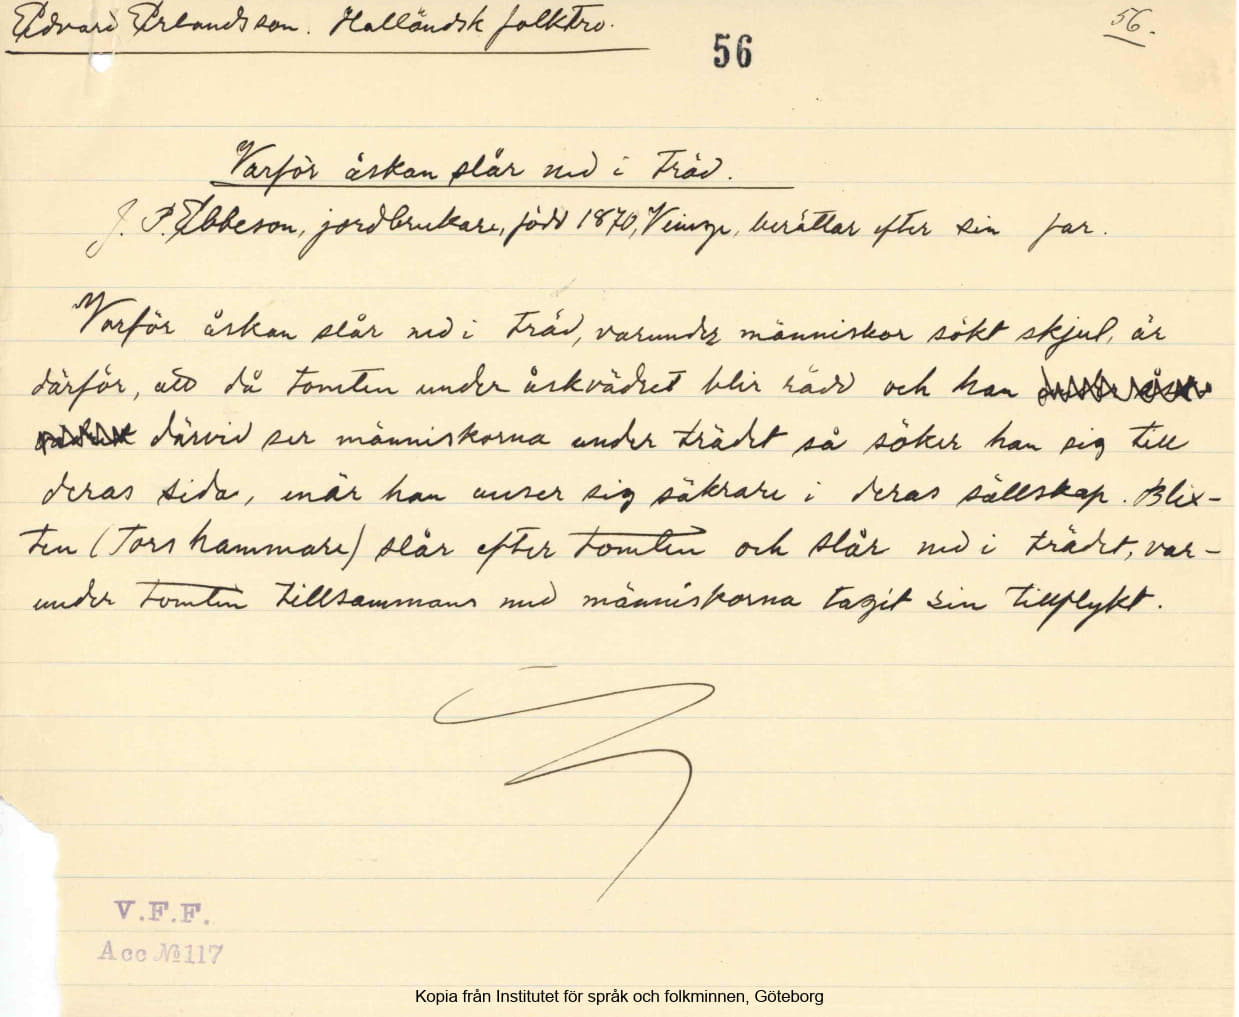 Edvard Erlandsson. Halländsk folktro.
56.
56
Varför åskan slår ned i träd.
J. P. Ebbeson, jordbrukare, född 1870, Veinge, berättar efter sin far.
Varför åskan slår ned i träd, varunder människor sökt skjul, är
därför, att då tomten under åskvädret blir rädd och han
därvid ser människorna under trädet så söker han sig till
deras sida, enär han anser sig säkrare i deras sällskap. Blix-
ten (Tors hammare) slår efter tomten och slår ned i trädet, var-
under tomten tillsammans med människorna tagit sin tillflykt.
V.F.F.
Acc № 117
Kopia från Institutet för språk och folkminnen, Göteborg